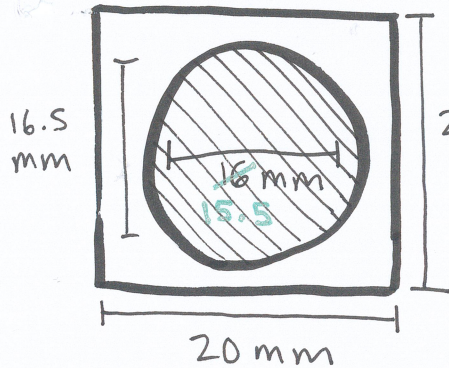 16.5
mm
16 mm
15.5
2
20 mm